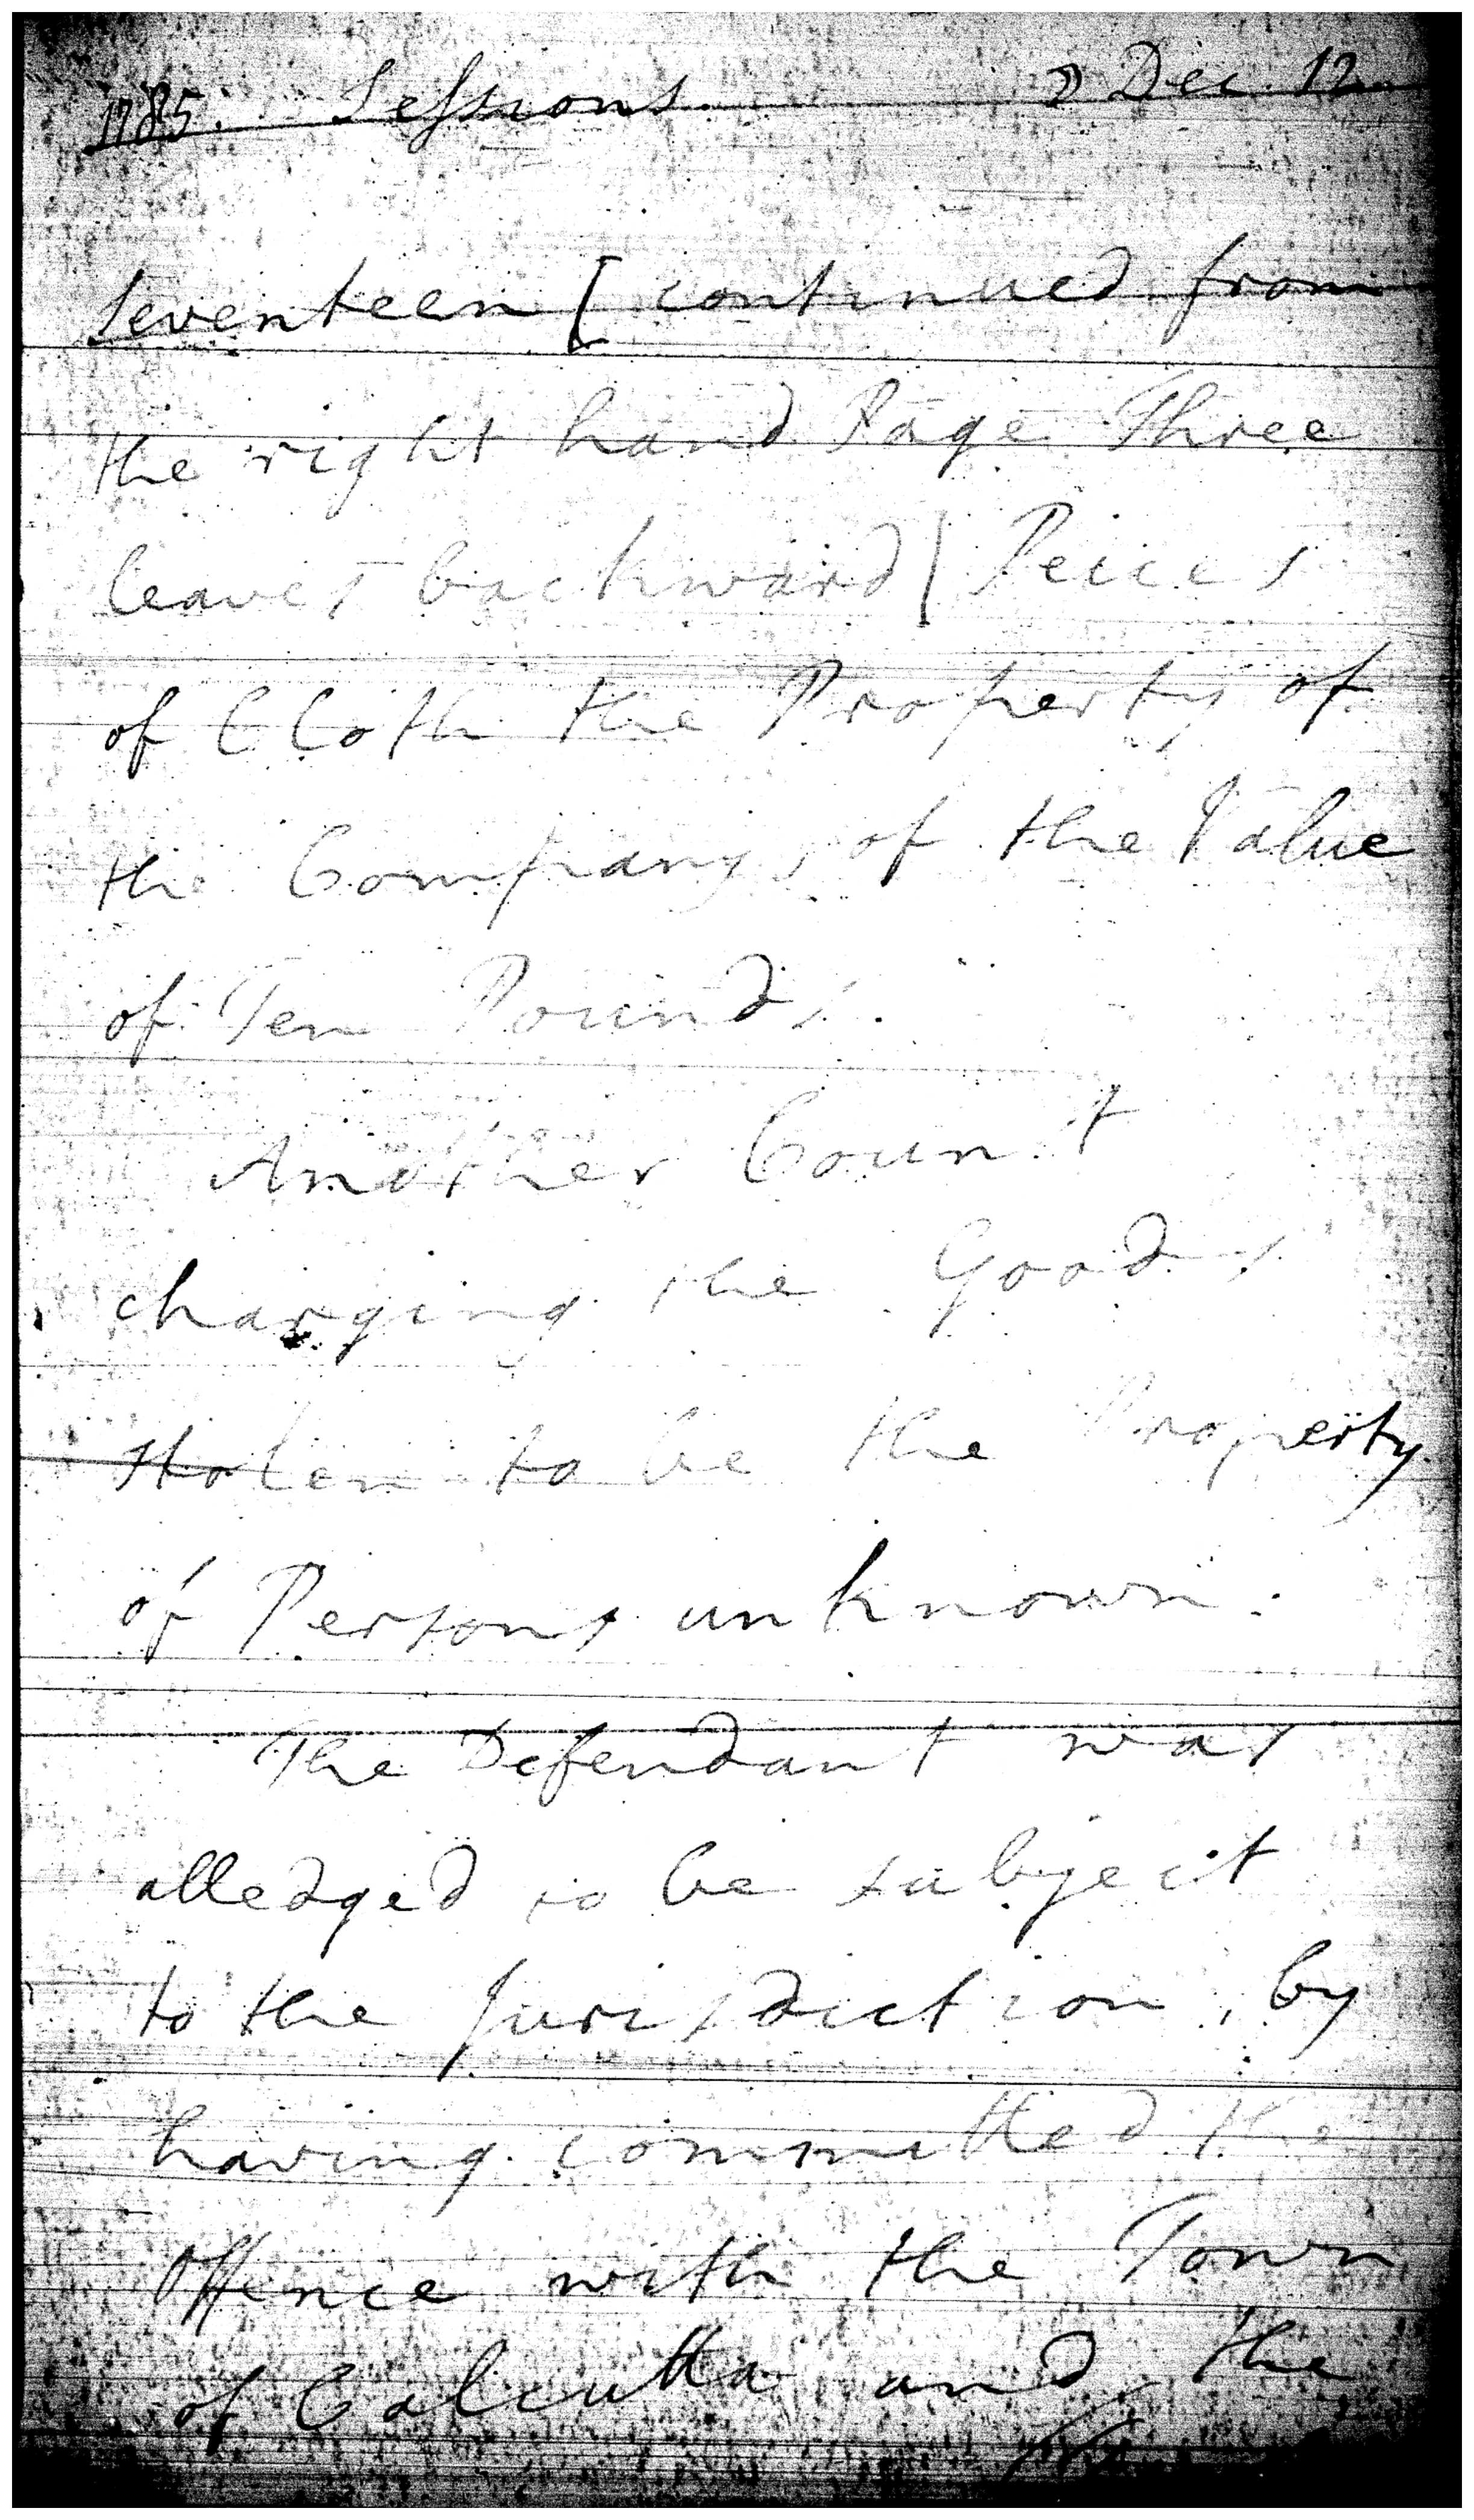 1785. Sessions. Dec. 12
Seventeen [continued from
the right hand Page Three
leaves backward] Peices
of Cloth the Property of
the Company, of the Value
of Ten Pounds.
Another Count
charging the Goods
stolen to be the Property
of Persons unknown.
The Defendant was
alledged to be subject
to the Jurisdiction, by
having committed the
Offence with the Town
of Calcutta and the